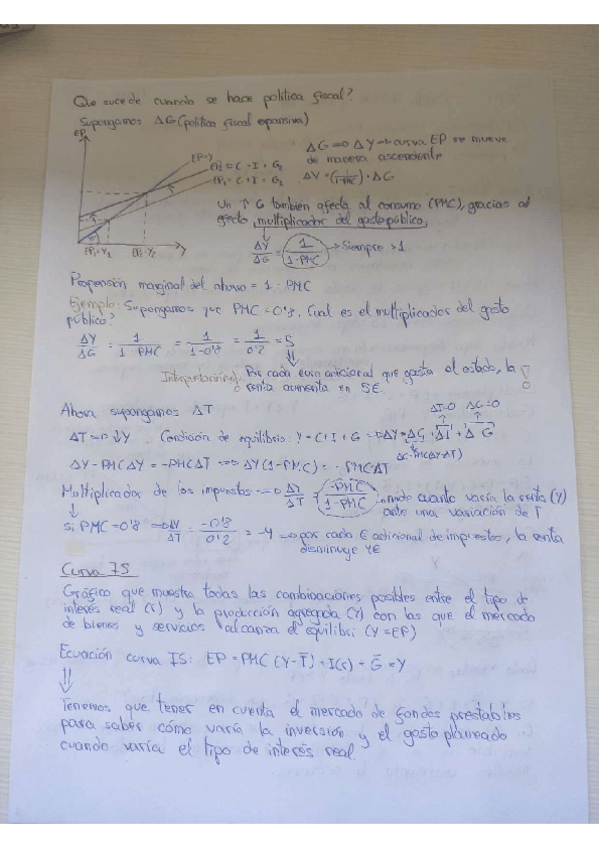 Que sucede cuando se hace política fiscal?
Supongamos ΔG (política fiscal expansiva)
EP
EP=Y
EP2 = C + I + G2
EP1 = C + I + G1
EP1=Y1
EP2=Y2
Y
ΔG ⇒ ΔY → curva EP se mueve
de manera ascendente
ΔY = (1/1-PMC) · ΔG
Un ↑ G también afecta al consumo (PMC), gracias al
efecto multiplicador del gasto público,
ΔY/ΔG = 1/1-PMC → Siempre >1
Propensión marginal del ahorro = 1 - PMC
Ejemplo: Supongamos que PMC = 0'8. Cual es el multiplicador del gasto
público?
ΔY/ΔG = 1/1-PMC = 1/1-0'8 = 1/0'2 = 5
⇓
Interpretación: Por cada euro adicional que gasta el estado, la
renta aumenta en 5€
Ahora supongamos ΔT
ΔI=0 ΔG=0
ΔT ⇒ ↓Y. Condición de equilibrio: Y = C + I + G ⇒ ΔY = ΔC + ΔI + ΔG
ΔC=PMC(ΔY-ΔT)
ΔY - PMCΔY = -PMCΔT ⇒ ΔY (1-PMC) = - PMC·ΔT
Multiplicador de los impuestos ⇒ ΔY/ΔT = -PMC/1-PMC cuanto varía la renta (Y)
ante una variación de T
↓
si PMC = 0'8 ⇒ ΔY/ΔT = -0'8/0'2 = -4 ⇒ por cada € adicional de impuestos, la renta
disminuye 4€
Curva IS
Gráfico que muestra todas las combinaciones posibles entre el tipo de
interés real (r) y la producción agregada (Y) con las que el mercado
de bienes y servicios alcanza el equilibri (Y = EP)
Ecuación curva IS: EP = PMC (Y-T̄) + I(r) + Ḡ = Y
⇓
Tenemos que tener en cuenta el mercado de fondos prestables
para saber cómo varía la inversión y el gasto planeado
cuando varía el tipo de interés real.